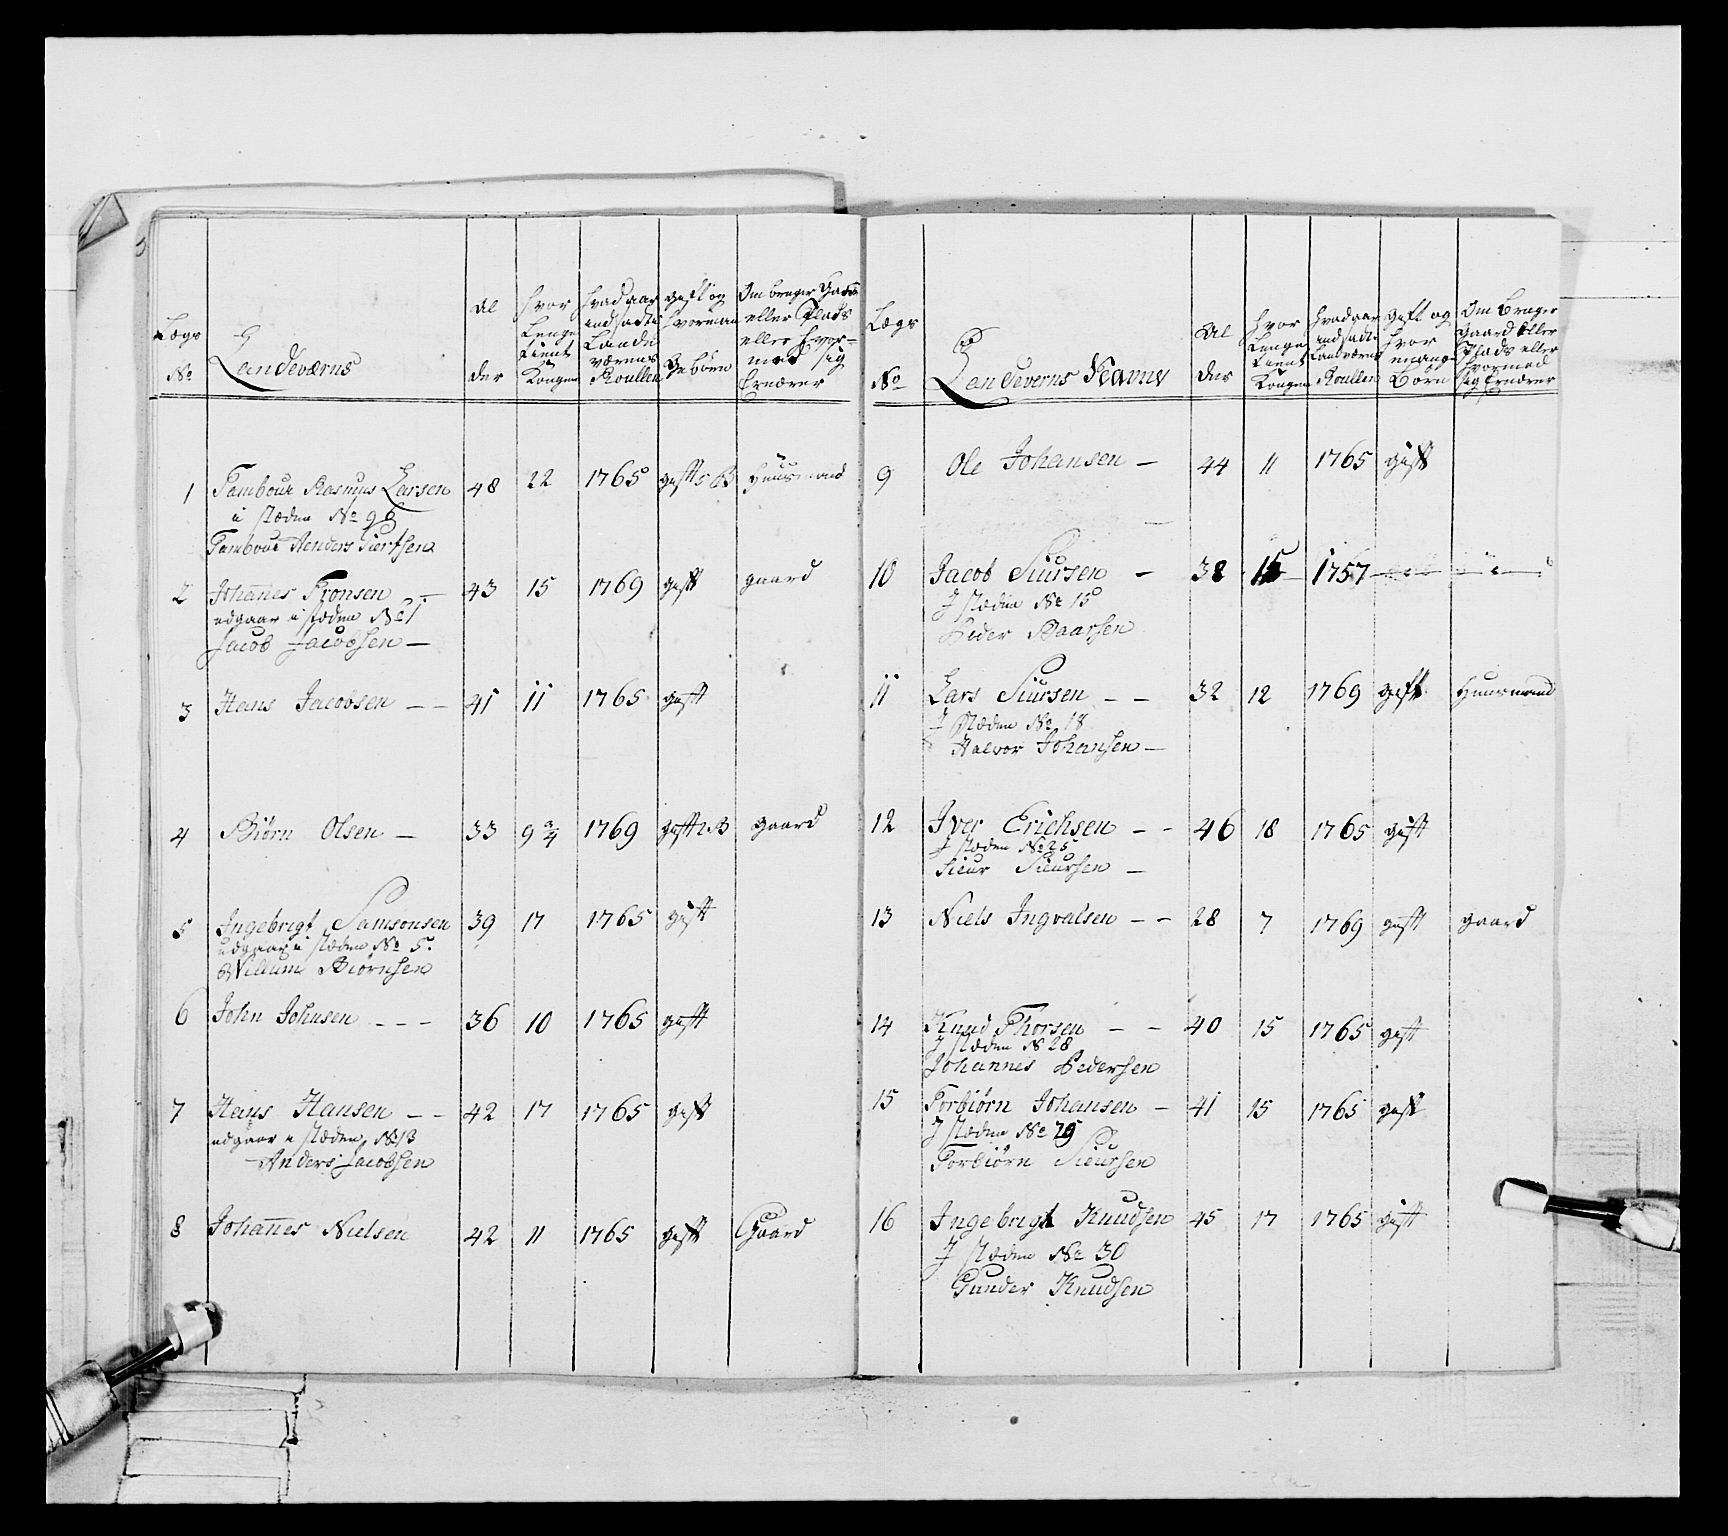 Lægs No
Landeværns
Al der
hvor Lenge Tient Kongen
hvad aar indsadte Lande værens Roullen
gift og hvorman ge börn
Om bruger Gaard eller Plads eller hvor- med sig Ernærer
1 Tambour Rasmus Larsen 48 22 1765 gift 5 B Huusmand
i stæden No 96
Tambour Anders Siursen
2 Johannes Tronsen 43 15 1769 gift gaard
udgaar i stæden No 1
Jacob Jacobsen —
3 Hans Jacobsen — — 41 11 1765 gift
4 Biörn Olsen — 33 9 3/4 1769 gift 2 B gaard
5 Ingebrigt Samsonsen 39 17 1765 gift
udgaar i stæden No 5.
Willum Biörnsen
6 John Johnsen - - - 36 10 1765 gift
7 Hans Hansen — — 42 17 1765 gift
udgaar i stæden No 13
Anders Jacobsen
8 Johannes Nielsen 42 11 1765 gift Gaard
Lægs No
Landeverns Navne
Al der
hvor Lenge Tient Kongen
hvad aar indsadt Landværns Roullen
gift og hvor mange Börn
Om Bruger Gaard Eller Plads eller hvormed sig Ernærer
9 Ole Johansen — 44 11 1765 gift
10 Jacob Siursen — 38 15 1757
I stæden No 15
Peder Baarsen
11 Lars Siursen — — 32 12 1769 gift Huusmand
I stæden No 18
Halvor Johansen —
12 Iver Erichsen — — 46 18 1765 gift
I stæden No 25
Sieur Sieursen —
13 Niels Ingvalsen — — 28 7 1769 gift gaard
14 Knud Thorsen — — 40 15 1765 gift
I stæden No 28
Johannes Pedersen
15 Torbiörn Johansen — 41 15 1765 gift
I stæden No 29
Torbiörn Sieursen
16 Ingebrigt Knudsen 45 17 1765 gift
I stæden No 30
Gunder Knudsen